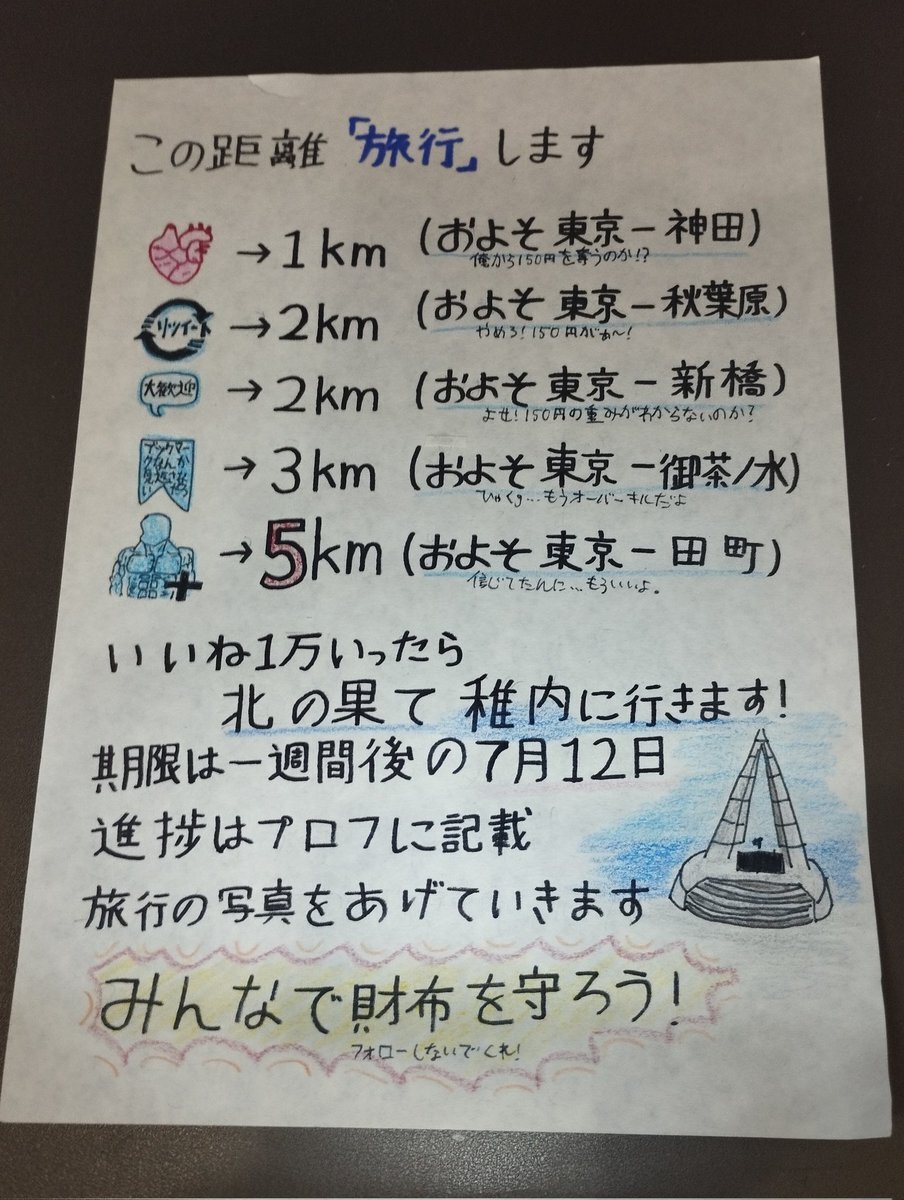 この距離「旅行」します
→1km (およそ 東京ー神田)
俺から150円を奪うのか!?
リツイート →2km (およそ 東京ー秋葉原)
やめろ!150円がぁ〜!
大歓迎 →2km (およそ 東京ー新橋)
よせ!150円の重みがわからないのか?
→3km (およそ 東京ー御茶ノ水)
もうオーバーキルだよ
+ →5km (およそ 東京ー田町)
信じてたんに…もういいよ。
いいね1万いったら
北の果て 稚内に行きます!
期限は一週間後の7月12日
進捗はプロフに記載
旅行の写真をあげていきます
みんなで財布を守ろう!
フォローしないでくれ!